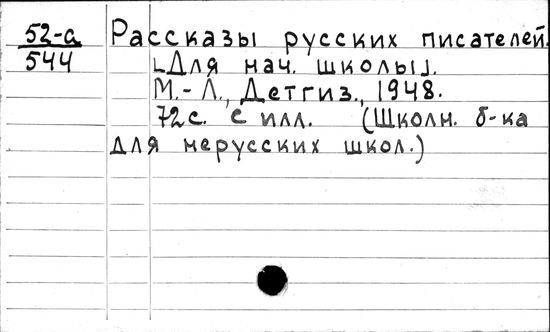 52-а
544
Рассказы русских писателей.
[Для нач. школы].
М.-Л., Детгиз., 1948.
72с. с илл. (Школн. б-ка
для нерусских школ.)